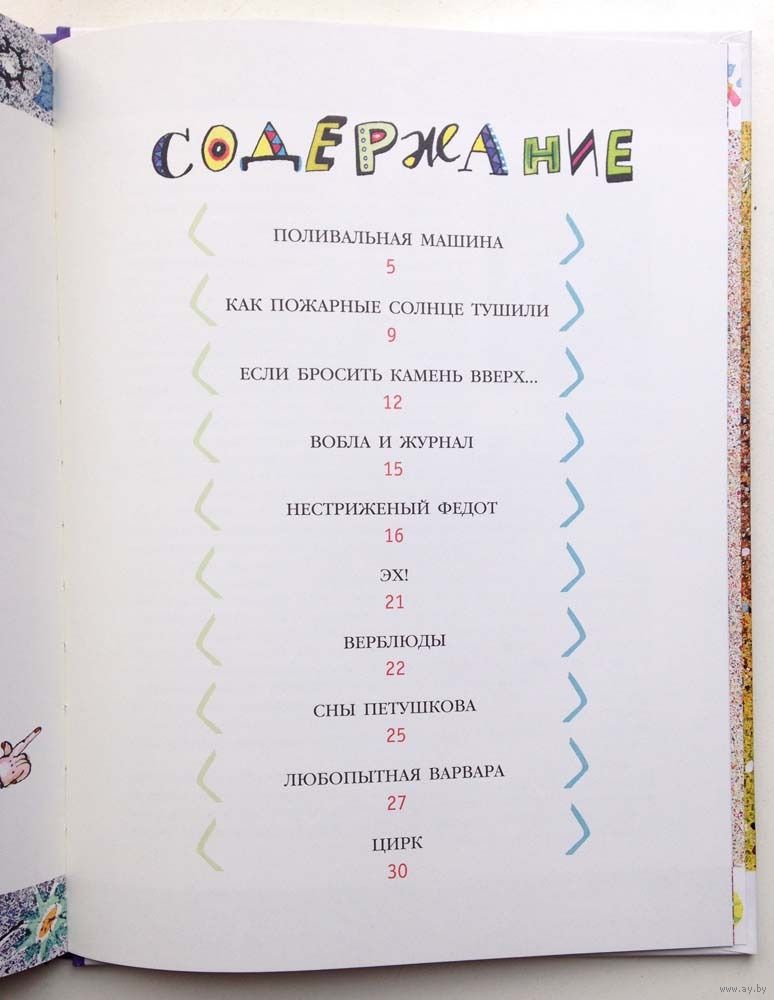 СОДЕРЖАНИЕ
ПОЛИВАЛЬНАЯ МАШИНА
5
КАК ПОЖАРНЫЕ СОЛНЦЕ ТУШИЛИ
9
ЕСЛИ БРОСИТЬ КАМЕНЬ ВВЕРХ...
12
ВОБЛА И ЖУРНАЛ
15
НЕСТРИЖЕНЫЙ ФЕДОТ
16
ЭХ!
21
ВЕРБЛЮДЫ
22
СНЫ ПЕТУШКОВА
25
ЛЮБОПЫТНАЯ ВАРВАРА
27
ЦИРК
30
www.ay.by